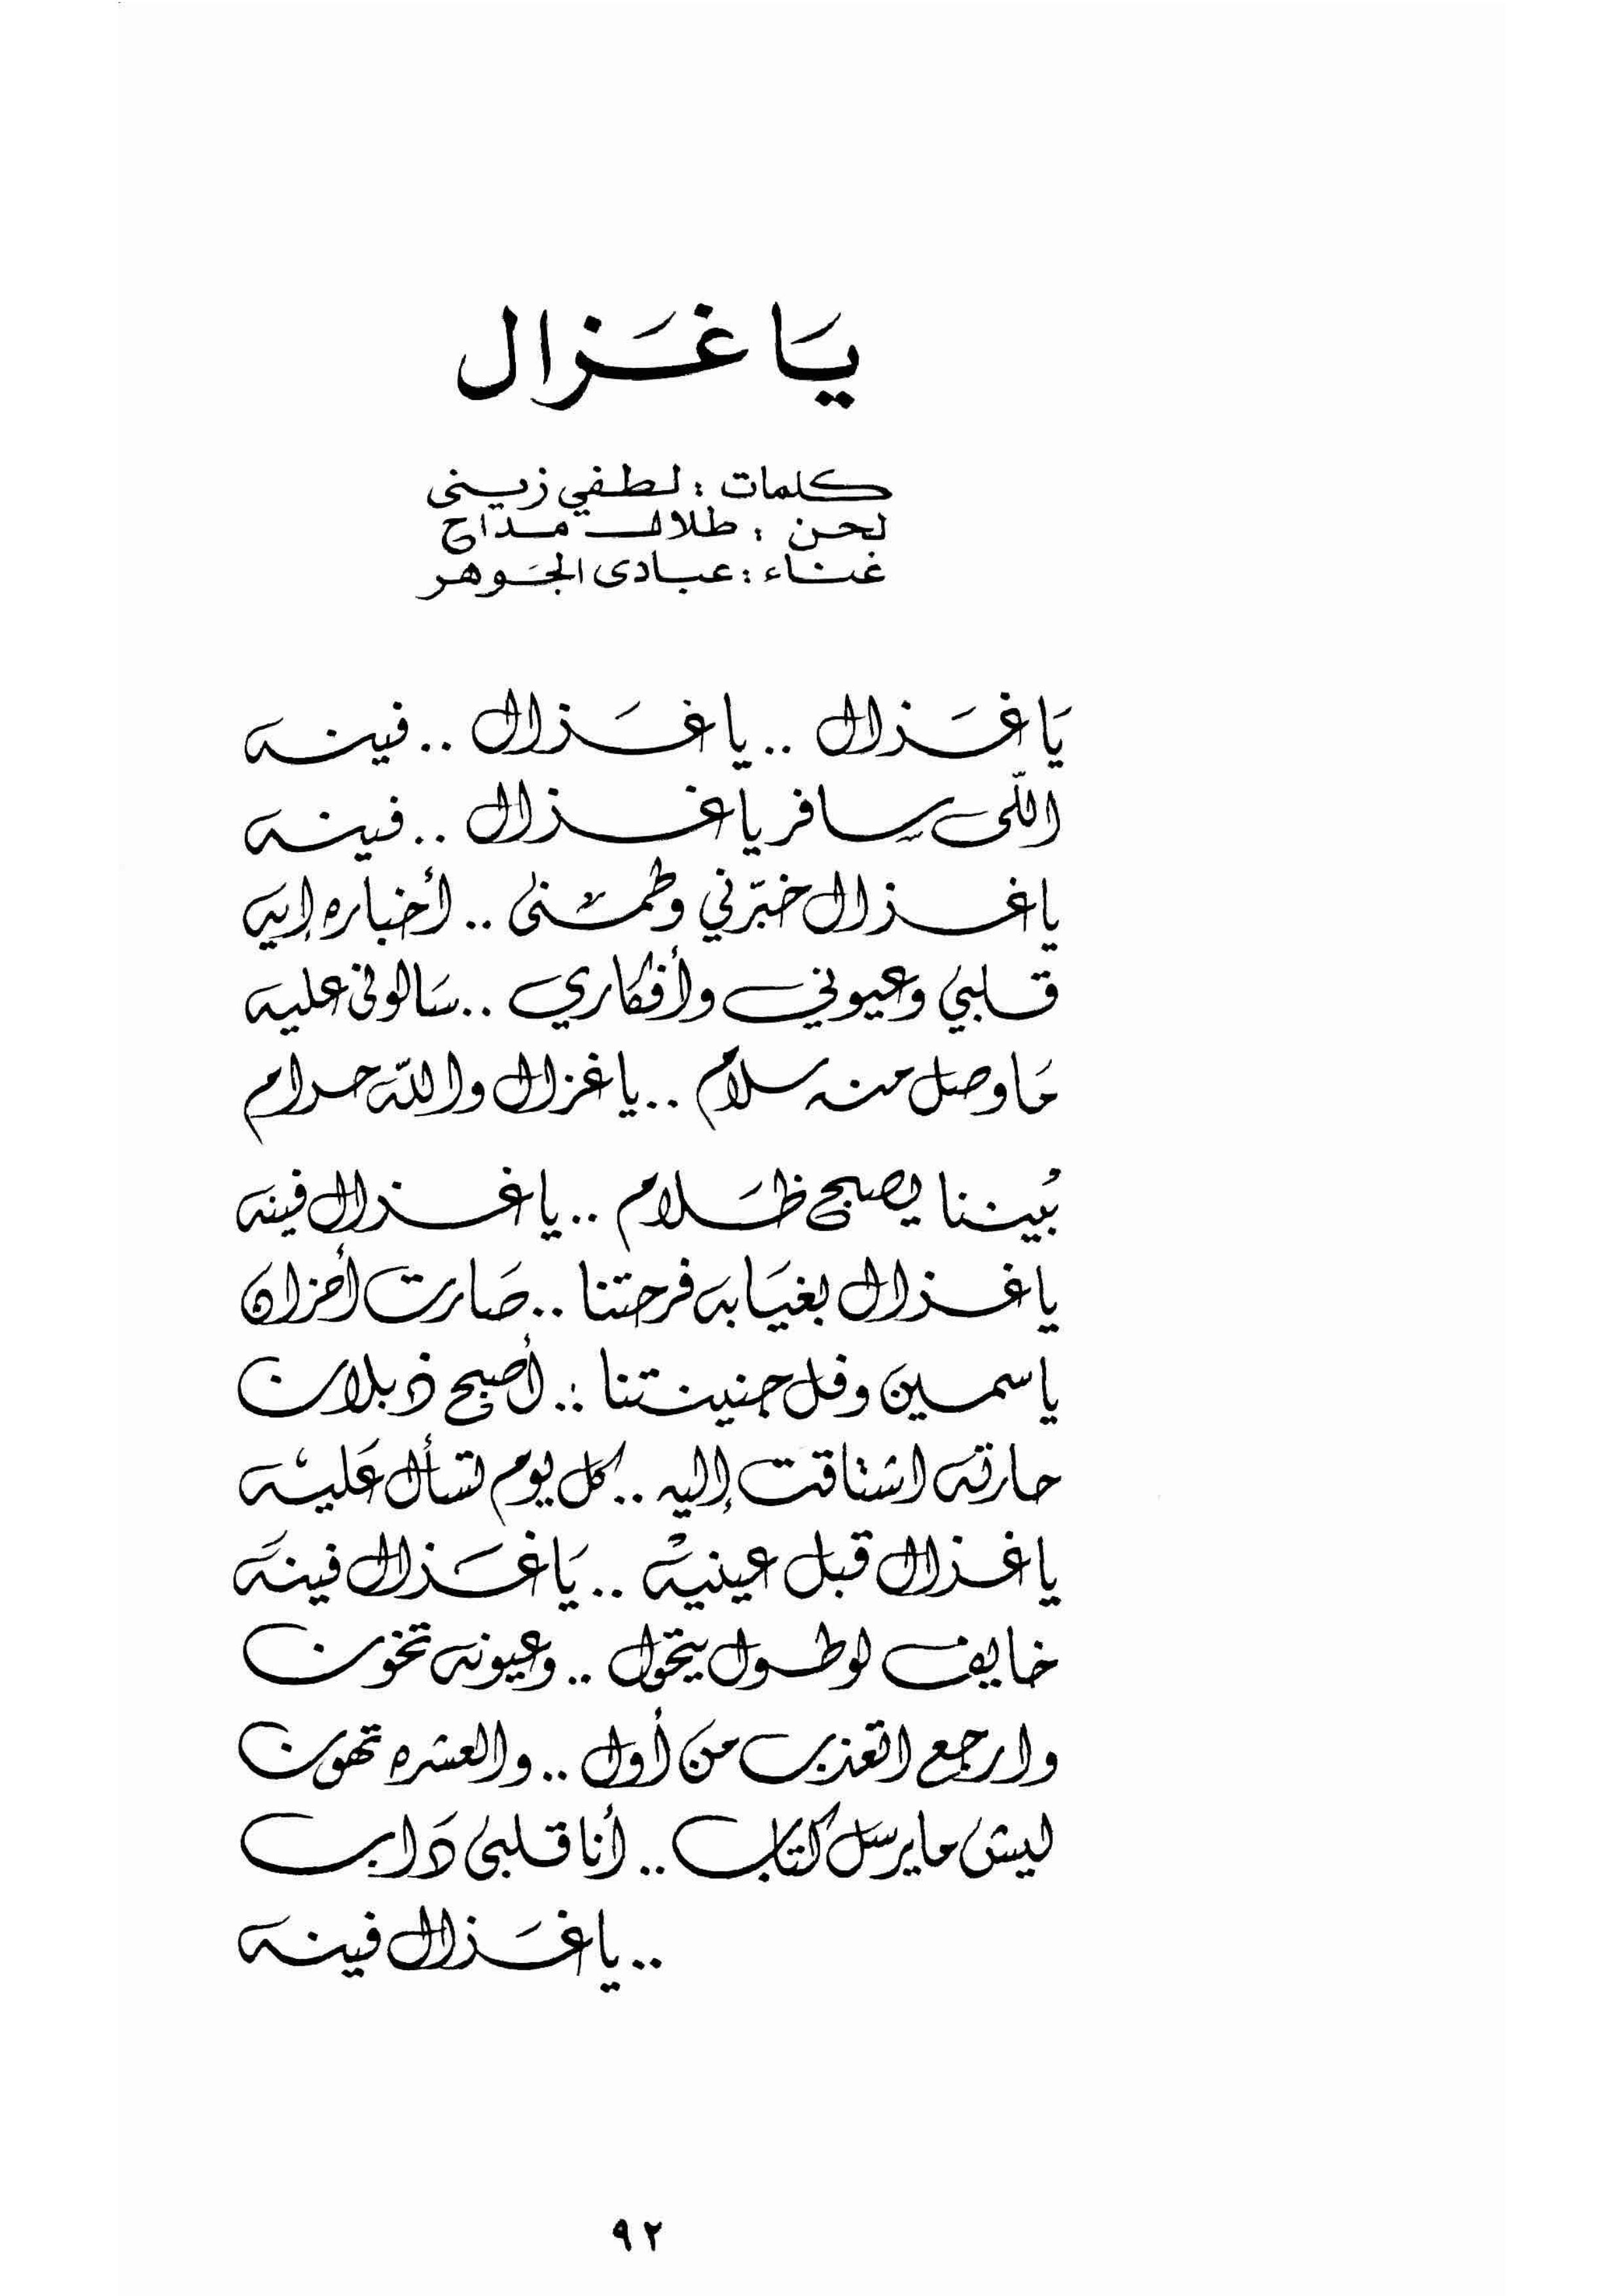 يَا غَزال
كلمات : لطفي زينى
لحن : طلال مداح
غناء : عبادى الجَوهر
يَا غَزال .. يا غَزال .. فينه
اللّى سافر يا غزال .. فينه
يا غزال خبّرني وطمّنى .. أخباره إيه
قلبي وعيوني وأفكاري .. سَالونى عليه
مَا وصل منه سلام .. يا غزال والله حرام
بُيننا يصبح ظَلام .. يا غزال فينه
يا غزال بغيَابه فرحتنا .. صَارت أحزان
ياسمين وفل جنينتنا .. أصبح ذبلان
حارته اشتاقت إليه .. كل يوم تسأل عَليْه
يا غزال قبل عينيْه .. يَا غَزال فينَه
خايف لو طول يتحوّل .. وعيونه تخون
وارجع اتعذب من أول .. والعشره تهون
ليش ما يرسل كتاب .. أنا قلبى دَاب
.. يا غَزال فينه
٩٢